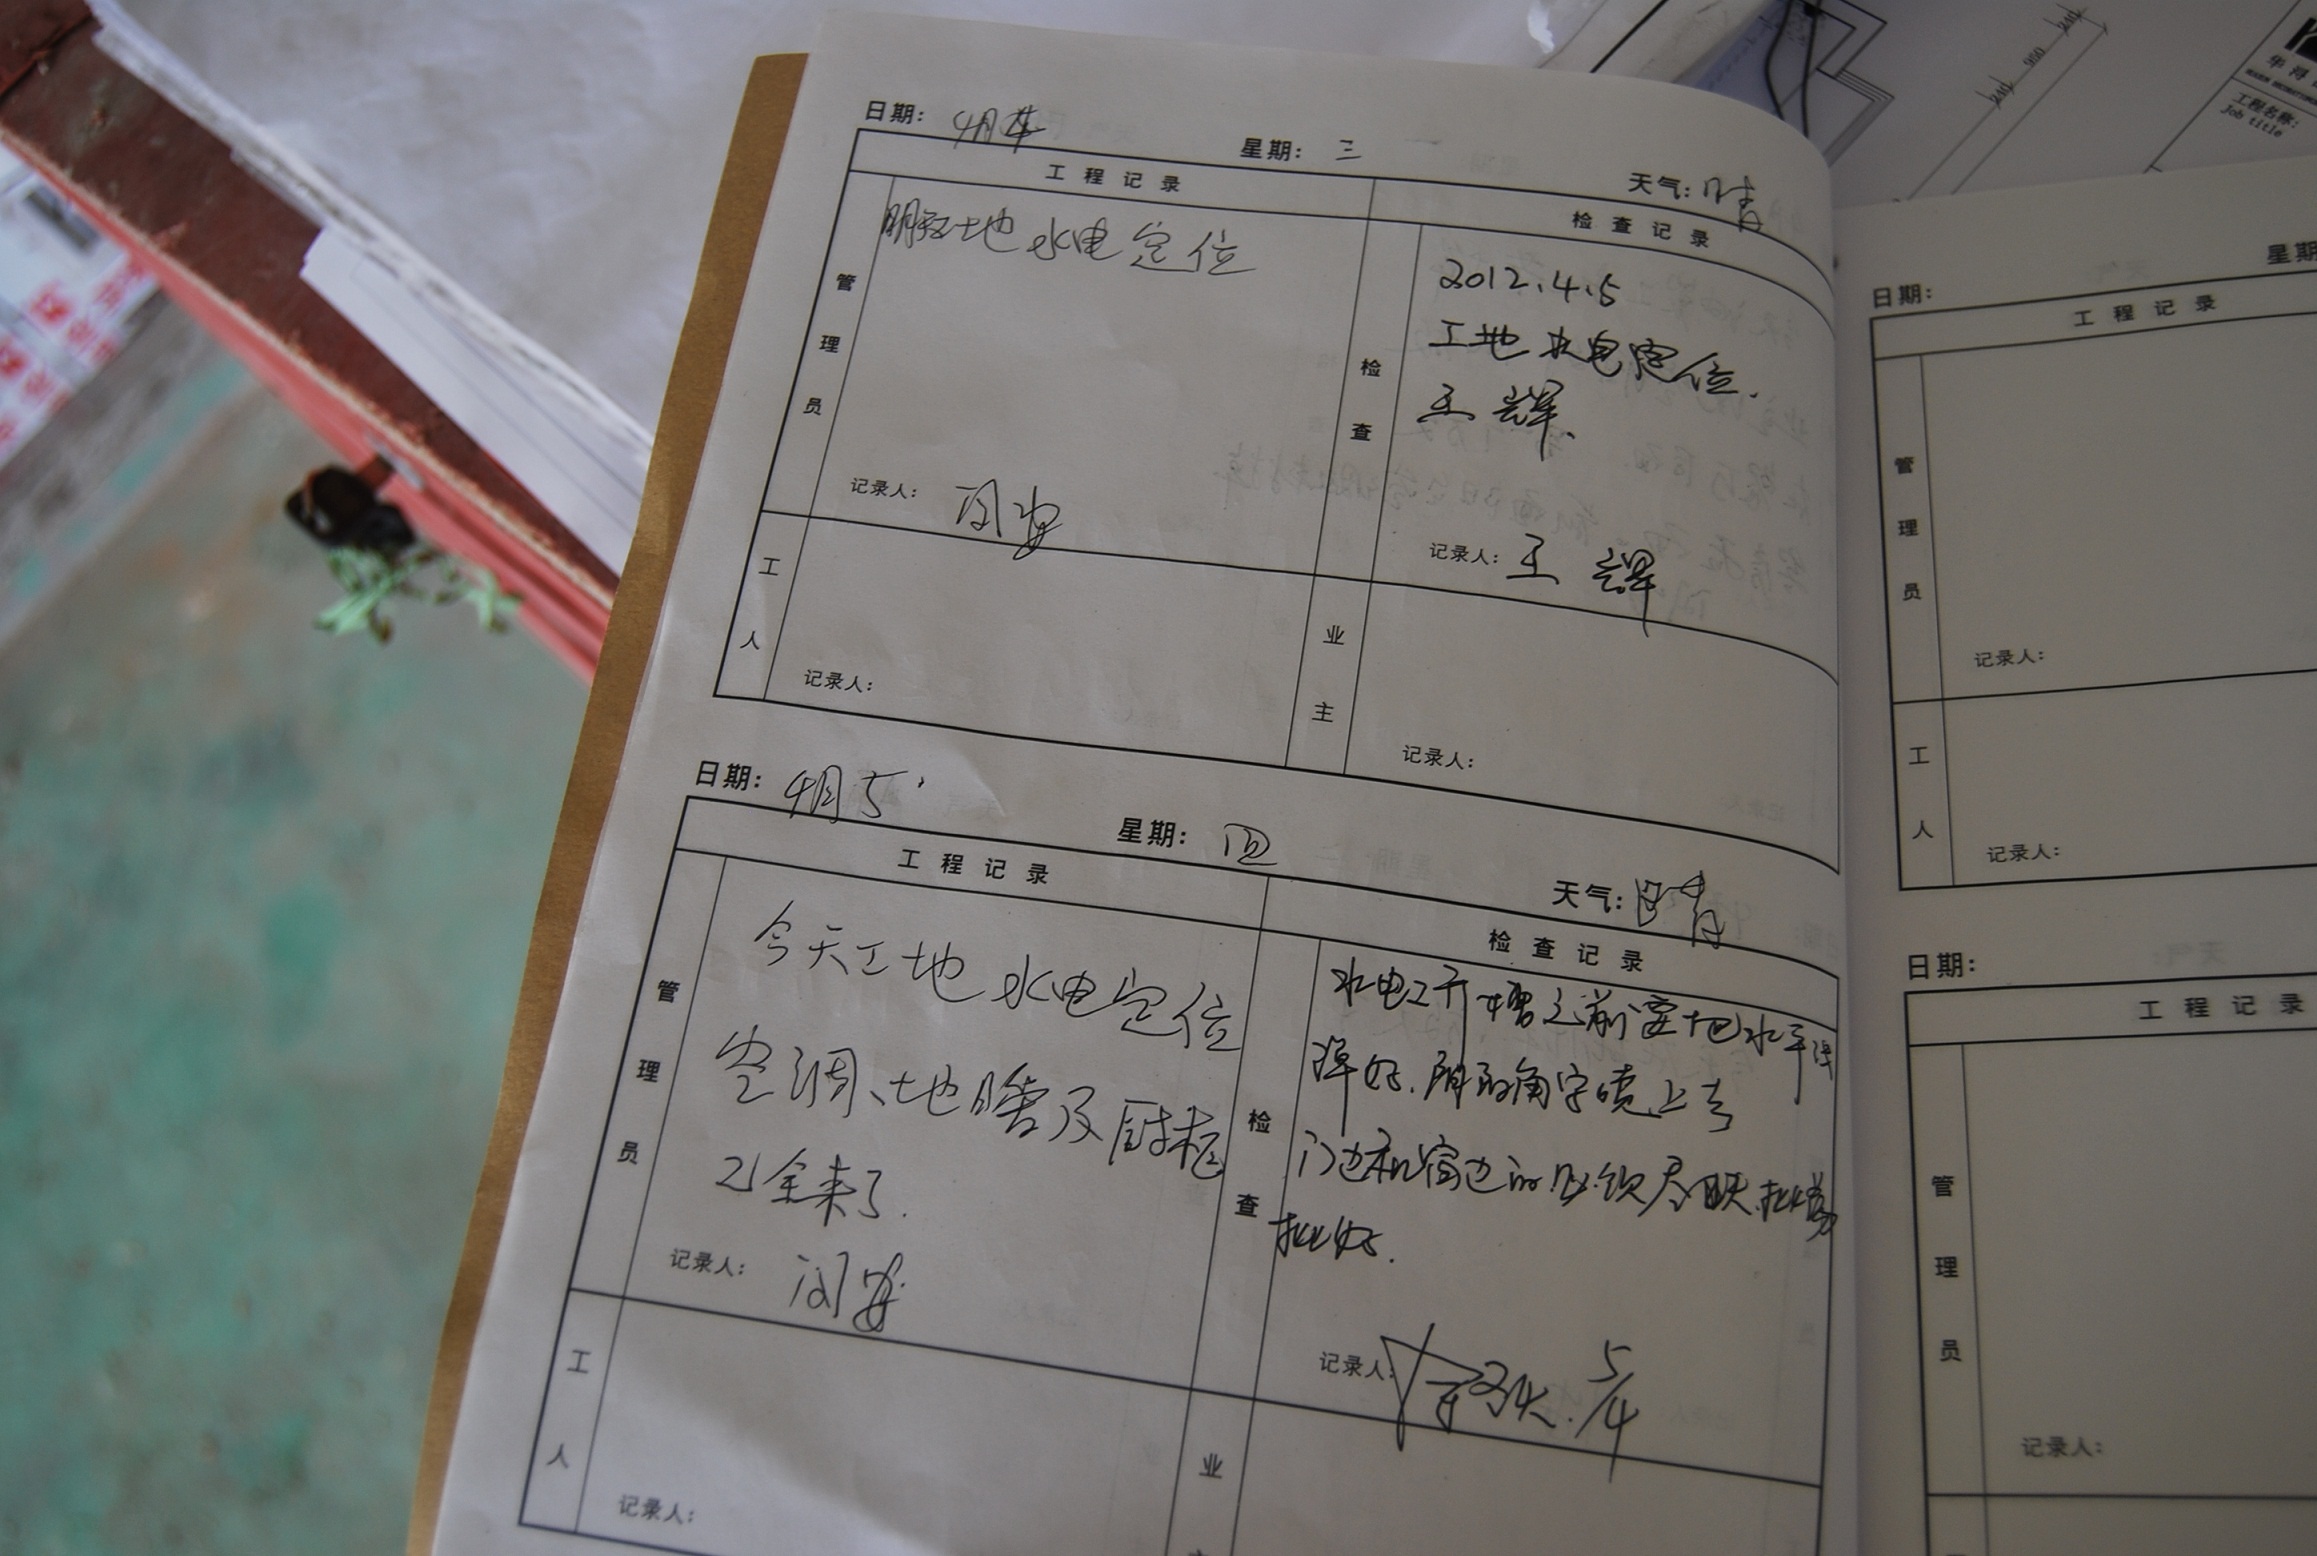 日期: 4月4
星期: 三
天气: 晴
工程记录
检查记录
管理员
明天工地水电定位
记录人: 闵安
检查
2012.4.5
工地水电定位.
王辉.
记录人: 王辉
工人
记录人:
业主
记录人:
日期: 4月5
星期: 四
天气: 晴
工程记录
检查记录
管理员
今天工地水电定位
空调、地暖及厨柜
全来了.
记录人: 闵安
检查
水电工开槽之前要地水平线
弹好.
门边和窗边的
批好.
记录人: 5/4
工人
记录人:
业
日期:
星期
工程记录
管理员
记录人:
工人
记录人:
日期:
工程记录
管理员
记录人:
工程名称:
Job title
240
980
240